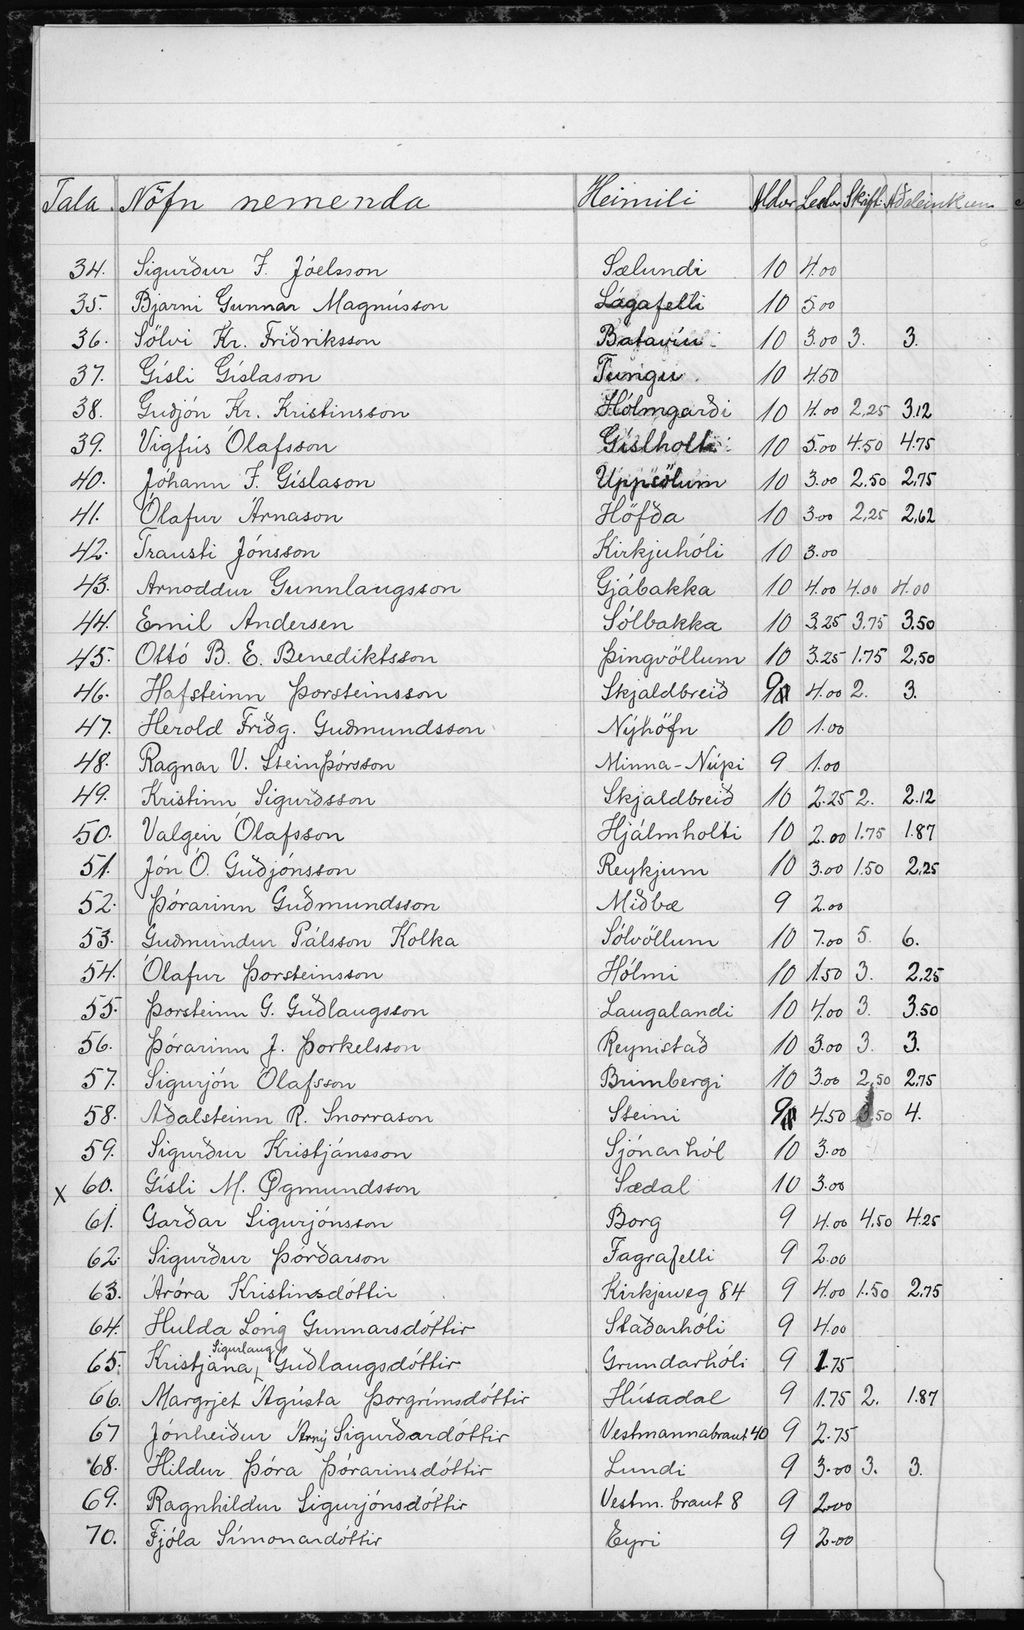 Tala. Nöfn nemenda Heimili Aldur Lestur Skrift. Aðaleinkunn
34. Sigurður F. Jóelsson Sælundi 10 4.00
35. Bjarni Gunnar Magnússon Lágafelli 10 5.00
36. Sölvi Kr. Friðriksson Batavíu 10 3.00 3. 3.
37. Gísli Gíslason Tungu 10 4.50
38. Guðjón Kr. Kristinsson Hólmgarði 10 4.00 2,25 3.12
39. Vigfús Ólafsson Gíslholti 10 5.00 4.50 4.75
40. Jóhann F. Gíslason Uppsölum 10 3.00 2.50 2,75
41. Ólafur Árnason Höfða 10 3.00 2,25 2,62
42. Trausti Jónsson Kirkjuhóli 10 3.00
43. Arnoddur Gunnlaugsson Gjábakka 10 4.00 4.00 4.00
44. Emil Andersen Sólbakka 10 3.25 3.75 3.50
45. Ottó B. E. Benediktsson Þingvöllum 10 3.25 1.75 2,50
46. Hafsteinn Þorsteinsson Skjaldbreið 9 4.00 2. 3.
47. Herold Friðg. Guðmundsson Nýhöfn 10 1.00
48. Ragnar V. Steinþórsson Minna-Núpi 9 1.00
49. Kristinn Sigurðsson Skjaldbreið 10 2.25 2. 2.12
50. Valgeir Ólafsson Hjálmholti 10 2.00 1.75 1.87
51. Jón Ó. Guðjónsson Reykjum 10 3.00 1.50 2,25
52. Þórarinn Guðmundsson Miðbæ 9 2.00
53. Guðmundur Pálsson Kolka Sólvöllum 10 7.00 5. 6.
54. Ólafur Þorsteinsson Hólmi 10 1.50 3. 2.25
55. Þorsteinn G. Guðlaugsson Laugalandi 10 4.00 3. 3.50
56. Þórarinn J. Þorkelsson Reynistað 10 3.00 3. 3.
57. Sigurjón Ólafsson Brimbergi 10 3.00 2,50 2,75
58. Aðalsteinn R. Snorrason Steini 9 4.50 3.50 4.
59. Sigurður Kristjánsson Sjónarhól 10 3.00
x 60. Gísli M. Øgmundsson Sædal 10 3.00
61. Garðar Sigurjónsson Borg 9 4.00 4.50 4.25
62. Sigurður Þórðarson Fagrafelli 9 2.00
63. Áróra Kristinsdóttir Kirkjuveg 84 9 4.00 1.50 2.75
64. Hulda Long Gunnarsdóttir Staðarhóli 9 4.00
65. Kristjana Sigurlaug Guðlaugsdóttir Grundarhóli 9 1.75
66. Margrjet Ágústa Þorgrímsdóttir Húsadal 9 1.75 2. 1.87
67 Jónheiður Árný Sigurðardóttir Vestmannabraut 40 9 2.75
68. Hildur Þóra Þórarinsdóttir Lundi 9 3.00 3. 3.
69. Ragnhildur Sigurjónsdóttir Vestm. braut 8 9 2.00
70. Fjóla Símonardóttir Eyri 9 2.00